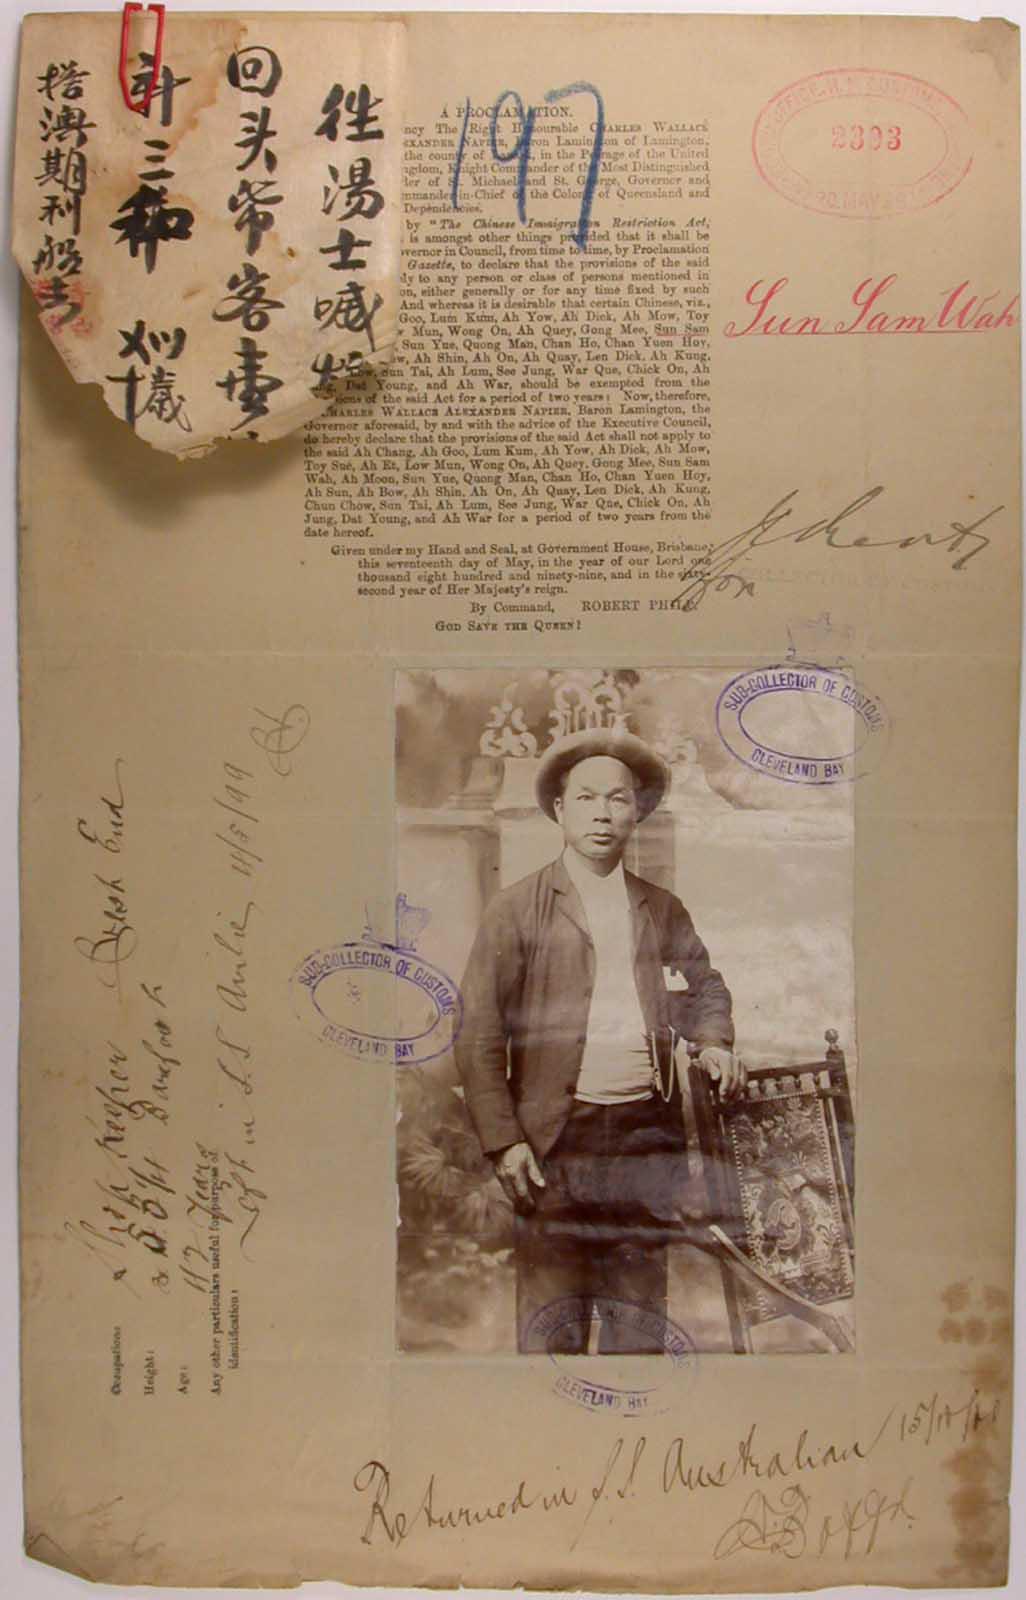 往湯士喊
回头帋客壹
新三
歲
搭澳期利船去
197
A PROCLAMATION.
ncy The Right Honourable CHARLES WALLACE
EXANDER NAPIER, Baron Lamington of Lamington,
the county of in the Peerage of the United
ngdom, Knight Commander of the Most Distinguished
der of St. Michael and St. George, Governor and
mmander-in-Chief of the Colony of Queensland and
Dependencies.
by "The Chinese Immigration Restriction Act,
is amongst other things provided that it shall be
overnor in Council, from time to time, by Proclamation
Gazette, to declare that the provisions of the said
ly to any person or class of persons mentioned in
on, either generally or for any time fixed by such
And whereas it is desirable that certain Chinese, viz.,
Goo, Lum Kum, Ah Yow, Ah Dick, Ah Mow, Toy
w Mun, Wong On, Ah Quey, Gong Mee, Sun Sam
, Sun Yue, Quong Man, Chan Ho, Chan Yuen Hoy,
ow, Ah Shin, Ah On, Ah Quay, Len Dick, Ah Kung,
Sun Tai, Ah Lum, See Jung, War Que, Chick On, Ah
Dat Young, and Ah War, should be exempted from the
sions of the said Act for a period of two years: Now, therefore,
CHARLES WALLACE ALEXANDER NAPIER, Baron Lamington, the
Governor aforesaid, by and with the advice of the Executive Council,
do hereby declare that the provisions of the said Act shall not apply to
the said Ah Chang, Ah Goo, Lum Kum, Ah Yow, Ah Dick, Ah Mow,
Toy Sue, Ah Et, Low Mun, Wong On, Ah Quey, Gong Mee, Sun Sam
Wah, Ah Moon, Sun Yue, Quong Man, Chan Ho, Chan Yuen Hoy,
Ah Sun, Ah Bow, Ah Shin, Ah On, Ah Quay, Len Dick, Ah Kung,
Chun Chow, Sun Tai, Ah Lum, See Jung, War Que, Chick On, Ah
Jung, Dat Young, and Ah War for a period of two years from the
date hereof.
Given under my Hand and Seal, at Government House, Brisbane,
this seventeenth day of May, in the year of our Lord one
thousand eight hundred and ninety-nine, and in the sixty-
second year of Her Majesty's reign.
By Command, ROBERT PHILP.
GOD SAVE THE QUEEN!
OFFICE, H.M. CUSTOMS
2303
20. MAY
Sun Sam Wah
for
SUB-COLLECTOR OF CUSTOMS
CLEVELAND BAY
SUB-COLLECTOR OF CUSTOMS
CLEVELAND BAY
CLEVELAND BAY
Occupation: Shop Keeper West End
Height: Barefoot
Age: 42 Years
Any other particulars useful for purpose of
identification:
Left in S.S. Airlie
Returned in S.S. Australian